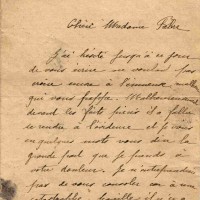 Chère Madame Fabre
J'ai hésité jusqu'à ce jour
de vous écrire ne voulant pas
croire encore à l'immense malheur
qui vous frappe. Malheureusement
devant les faits précis il a fallu
se rendre à l'évidence et je viens
en quelques mots vous dire la
grande part que je prends à
votre douleur. Je n'entreprendrai
pas de vous consoler car à une